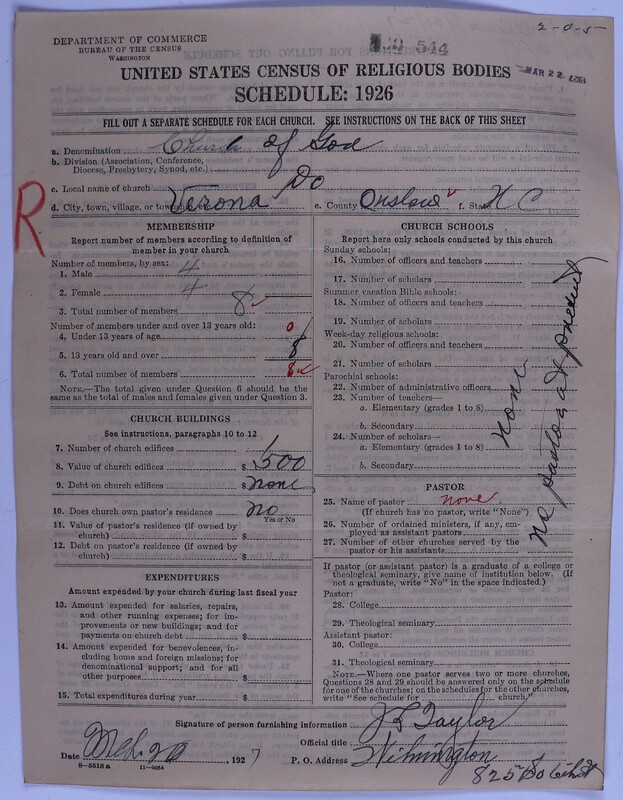 2-0-5
DEPARTMENT OF COMMERCE
BUREAU OF THE CENSUS
WASHINGTON
544
MAR 22
UNITED STATES CENSUS OF RELIGIOUS BODIES
SCHEDULE: 1926
FILL OUT A SEPARATE SCHEDULE FOR EACH CHURCH. SEE INSTRUCTIONS ON THE BACK OF THIS SHEET
a. Denomination Church of God
b. Division (Association, Conference,
Diocese, Presbytery, Synod, etc.)
c. Local name of church Do
d. City, town, village, or township Verona e. County Onslow f. State N C
R
MEMBERSHIP
Report number of members according to definition of
member in your church
Number of members, by sex:
1. Male 4
2. Female 4
3. Total number of members 8
Number of members under and over 13 years old:
4. Under 13 years of age 0
5. 13 years old and over 8
6. Total number of members 8
NOTE.—The total given under Question 6 should be the
same as the total of males and females given under Question 3.
CHURCH BUILDINGS
See instructions, paragraphs 10 to 12
7. Number of church edifices 1
8. Value of church edifices $ 500
9. Debt on church edifices $ none
10. Does church own pastor's residence no
Yes or No
11. Value of pastor's residence (if owned by
church) $
12. Debt on pastor's residence (if owned by
church) $
EXPENDITURES
Amount expended by your church during last fiscal year
13. Amount expended for salaries, repairs,
and other running expenses; for im-
provements or new buildings; and for
payments on church debt $
14. Amount expended for benevolences, in-
cluding home and foreign missions; for
denominational support; and for all
other purposes $
15. Total expenditures during year $
CHURCH SCHOOLS
Report here only schools conducted by this church
Sunday schools:
16. Number of officers and teachers
17. Number of scholars
Summer vacation Bible schools:
18. Number of officers and teachers
19. Number of scholars
Week-day religious schools:
20. Number of officers and teachers
21. Number of scholars
Parochial schools:
22. Number of administrative officers
23. Number of teachers—
a. Elementary (grades 1 to 8)
b. Secondary
24. Number of scholars—
a. Elementary (grades 1 to 8)
b. Secondary
none
no pastor at present
PASTOR
25. Name of pastor none
(If church has no pastor, write "None")
26. Number of ordained ministers, if any, em-
ployed as assistant pastors
27. Number of other churches served by the
pastor or his assistants
If pastor (or assistant pastor) is a graduate of a college or
theological seminary, give name of institution below. (If
not a graduate, write "No" in the space indicated.)
Pastor:
28. College
29. Theological seminary
Assistant pastor:
30. College
31. Theological seminary
NOTE.—Where one pastor serves two or more churches,
Questions 28 and 29 should be answered only on the schedule
for one of the churches; on the schedules for the other churches,
write "See schedule for church."
Signature of person furnishing information J L Taylor
Official title
Date Mch. 20, 1927 P. O. Address Wilmington
8-5518 a
825 So